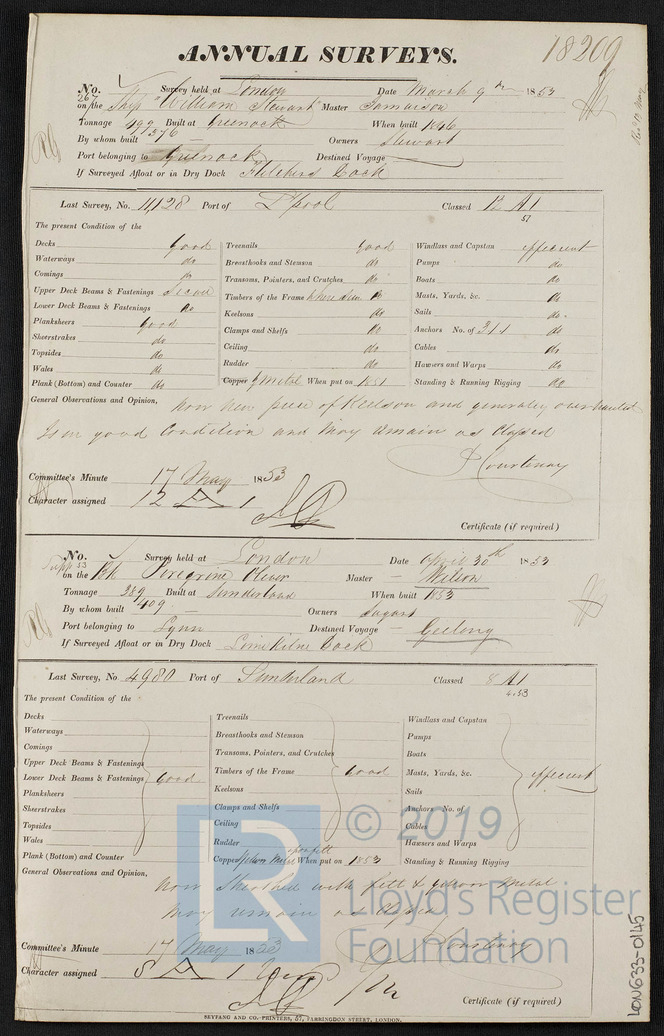 18209
ANNUAL SURVEYS.
No. Survey held at London Date March 9th 1853
267 on the Ship "William Stewart" Master Jamaison
Tonnage 492 Built at Greenock When built 1846
By whom built 576 Owners Stewart
Port belonging to Greenock Destined Voyage
If Surveyed Afloat or in Dry Dock Fletchers Dock
Last Survey, No. 11,128 Port of L'pool Classed 12 A1
51
The present Condition of the
Decks good
Waterways do
Comings do
Upper Deck Beams & Fastenings
Lower Deck Beams & Fastenings do
Planksheers good
Sheerstrakes do
Topsides do
Wales do
Plank (Bottom) and Counter do
Treenails good
Breasthooks and Stemson do
Transoms, Pointers, and Crutches do
Timbers of the Frame where seen do
Keelsons do
Clamps and Shelfs do
Ceiling do
Rudder do
Copper Y Metal When put on 1851
Windlass and Capstan efficient
Pumps do
Boats do
Masts, Yards, &c. do
Sails do
Anchors No. of 3 1 1 do
Cables do
Hawsers and Warps do
Standing & Running Rigging do
General Observations and Opinion, now new piece of Keelson and generally overhauled
Is in good Condition and May remain as Classed
J Courtenay
Committee's Minute 17 May 1853
Character assigned 12 A 1
Certificate (if required)
No. Survey held at London Date April 30th 1853
Supp 53 on the Bk Peregrine Oliver Master Wilson
Tonnage 389 Built at Sunderland When built 1853
By whom built 409 Owners
Port belonging to Lynn Destined Voyage Geelong
If Surveyed Afloat or in Dry Dock Lime Kilne Dock
Last Survey, No 4980 Port of Sunderland Classed 8 A1
4.53
The present Condition of the
Decks
Waterways
Comings
Upper Deck Beams & Fastenings
Lower Deck Beams & Fastenings Good
Planksheers
Sheerstrakes
Topsides
Wales
Plank (Bottom) and Counter
Treenails
Breasthooks and Stemson
Transoms, Pointers, and Crutches
Timbers of the Frame Good
Keelsons
Clamps and Shelfs
Ceiling
Rudder
Copper Yellow Metal upon felt When put on 1853
Windlass and Capstan
Pumps
Boats
Masts, Yards, &c. efficient
Sails
Anchors No. of
Cables
Hawsers and Warps
Standing & Running Rigging
General Observations and Opinion, now Sheathed with felt & yellow Metal
May remain as Classed
J Courtenay
Committee's Minute 17 May 1853
Character assigned 8 A 1
Certificate (if required)
SEYFANG AND CO.-PRINTERS, 57, FARRINGDON STREET, LONDON.
LR © 2019
Lloyd's Register
Foundation
LON633-0145